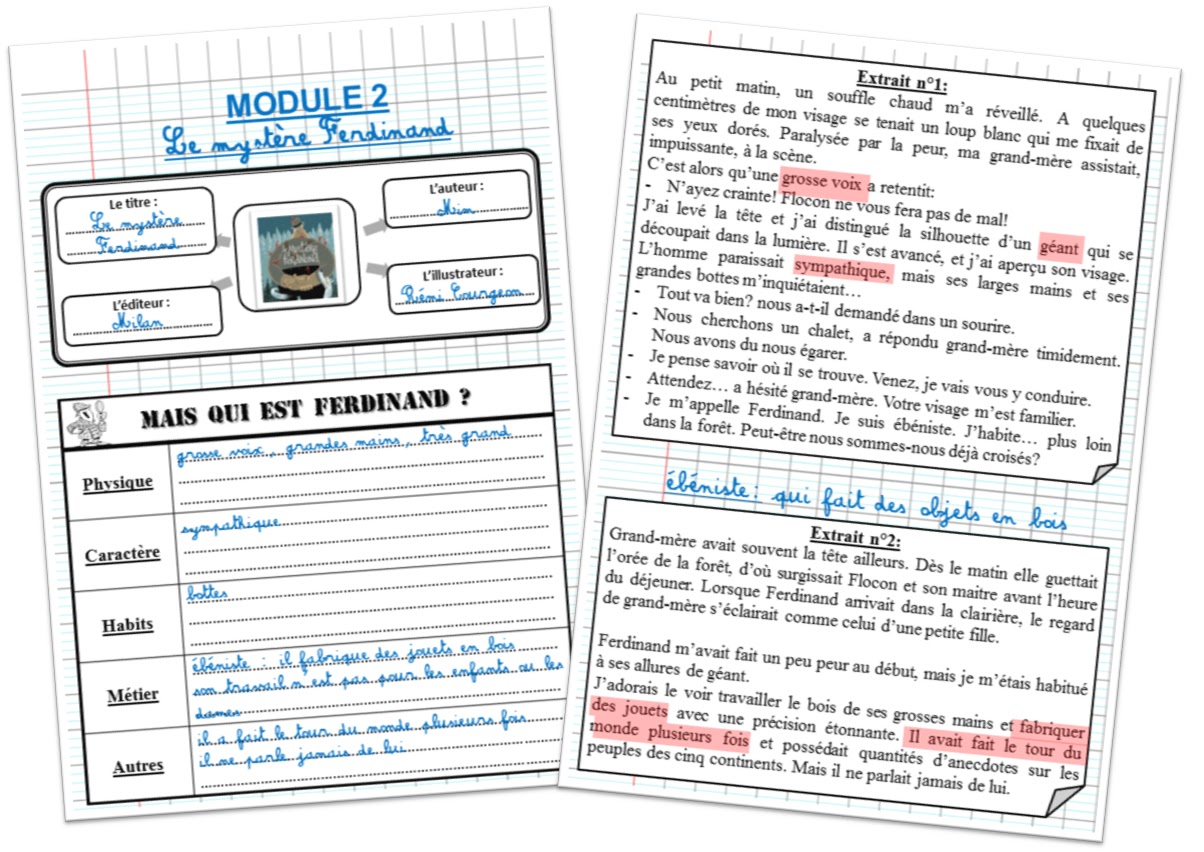 MODULE 2
Le mystère Ferdinand
Le titre :
Le mystère
Ferdinand
L'auteur :
Mim
L'éditeur :
Milan
L'illustrateur :
Rémi Courgeon
MAIS QUI EST FERDINAND ?
Physique
grosse voix, grandes mains, très grand
Caractère
sympathique
Habits
bottes
Métier
ébéniste : il fabrique des jouets en bois
son travail n'est pas pour les enfants ou les
dames
Autres
il a fait le tour du monde plusieurs fois
il ne parle jamais de lui
Extrait n°1:
Au petit matin, un souffle chaud m'a réveillé. A quelques
centimètres de mon visage se tenait un loup blanc qui me fixait de
ses yeux dorés. Paralysée par la peur, ma grand-mère assistait,
impuissante, à la scène.
C'est alors qu'une grosse voix a retentit:
- N'ayez crainte! Flocon ne vous fera pas de mal!
J'ai levé la tête et j'ai distingué la silhouette d'un géant qui se
découpait dans la lumière. Il s'est avancé, et j'ai aperçu son visage.
L'homme paraissait sympathique, mais ses larges mains et ses
grandes bottes m'inquiétaient…
- Tout va bien? nous a-t-il demandé dans un sourire.
- Nous cherchons un chalet, a répondu grand-mère timidement.
Nous avons du nous égarer.
- Je pense savoir où il se trouve. Venez, je vais vous y conduire.
- Attendez… a hésité grand-mère. Votre visage m'est familier.
- Je m'appelle Ferdinand. Je suis ébéniste. J'habite… plus loin
dans la forêt. Peut-être nous sommes-nous déjà croisés?
ébéniste : qui fait des objets en bois
Extrait n°2:
Grand-mère avait souvent la tête ailleurs. Dès le matin elle guettait
l'orée de la forêt, d'où surgissait Flocon et son maitre avant l'heure
du déjeuner. Lorsque Ferdinand arrivait dans la clairière, le regard
de grand-mère s'éclairait comme celui d'une petite fille.
Ferdinand m'avait fait un peu peur au début, mais je m'étais habitué
à ses allures de géant.
J'adorais le voir travailler le bois de ses grosses mains et fabriquer
des jouets avec une précision étonnante. Il avait fait le tour du
monde plusieurs fois et possédait quantités d'anecdotes sur les
peuples des cinq continents. Mais il ne parlait jamais de lui.